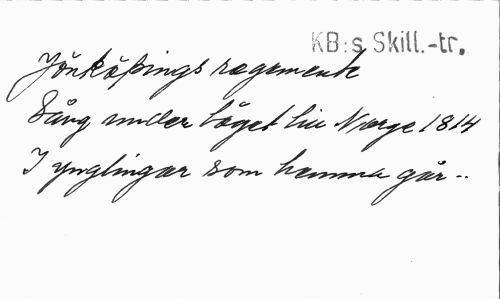 KB:s Skill.-tr.
Jönköpings regemente
Sång under tåget till Norge 1814
I ynglingar som hemma går..